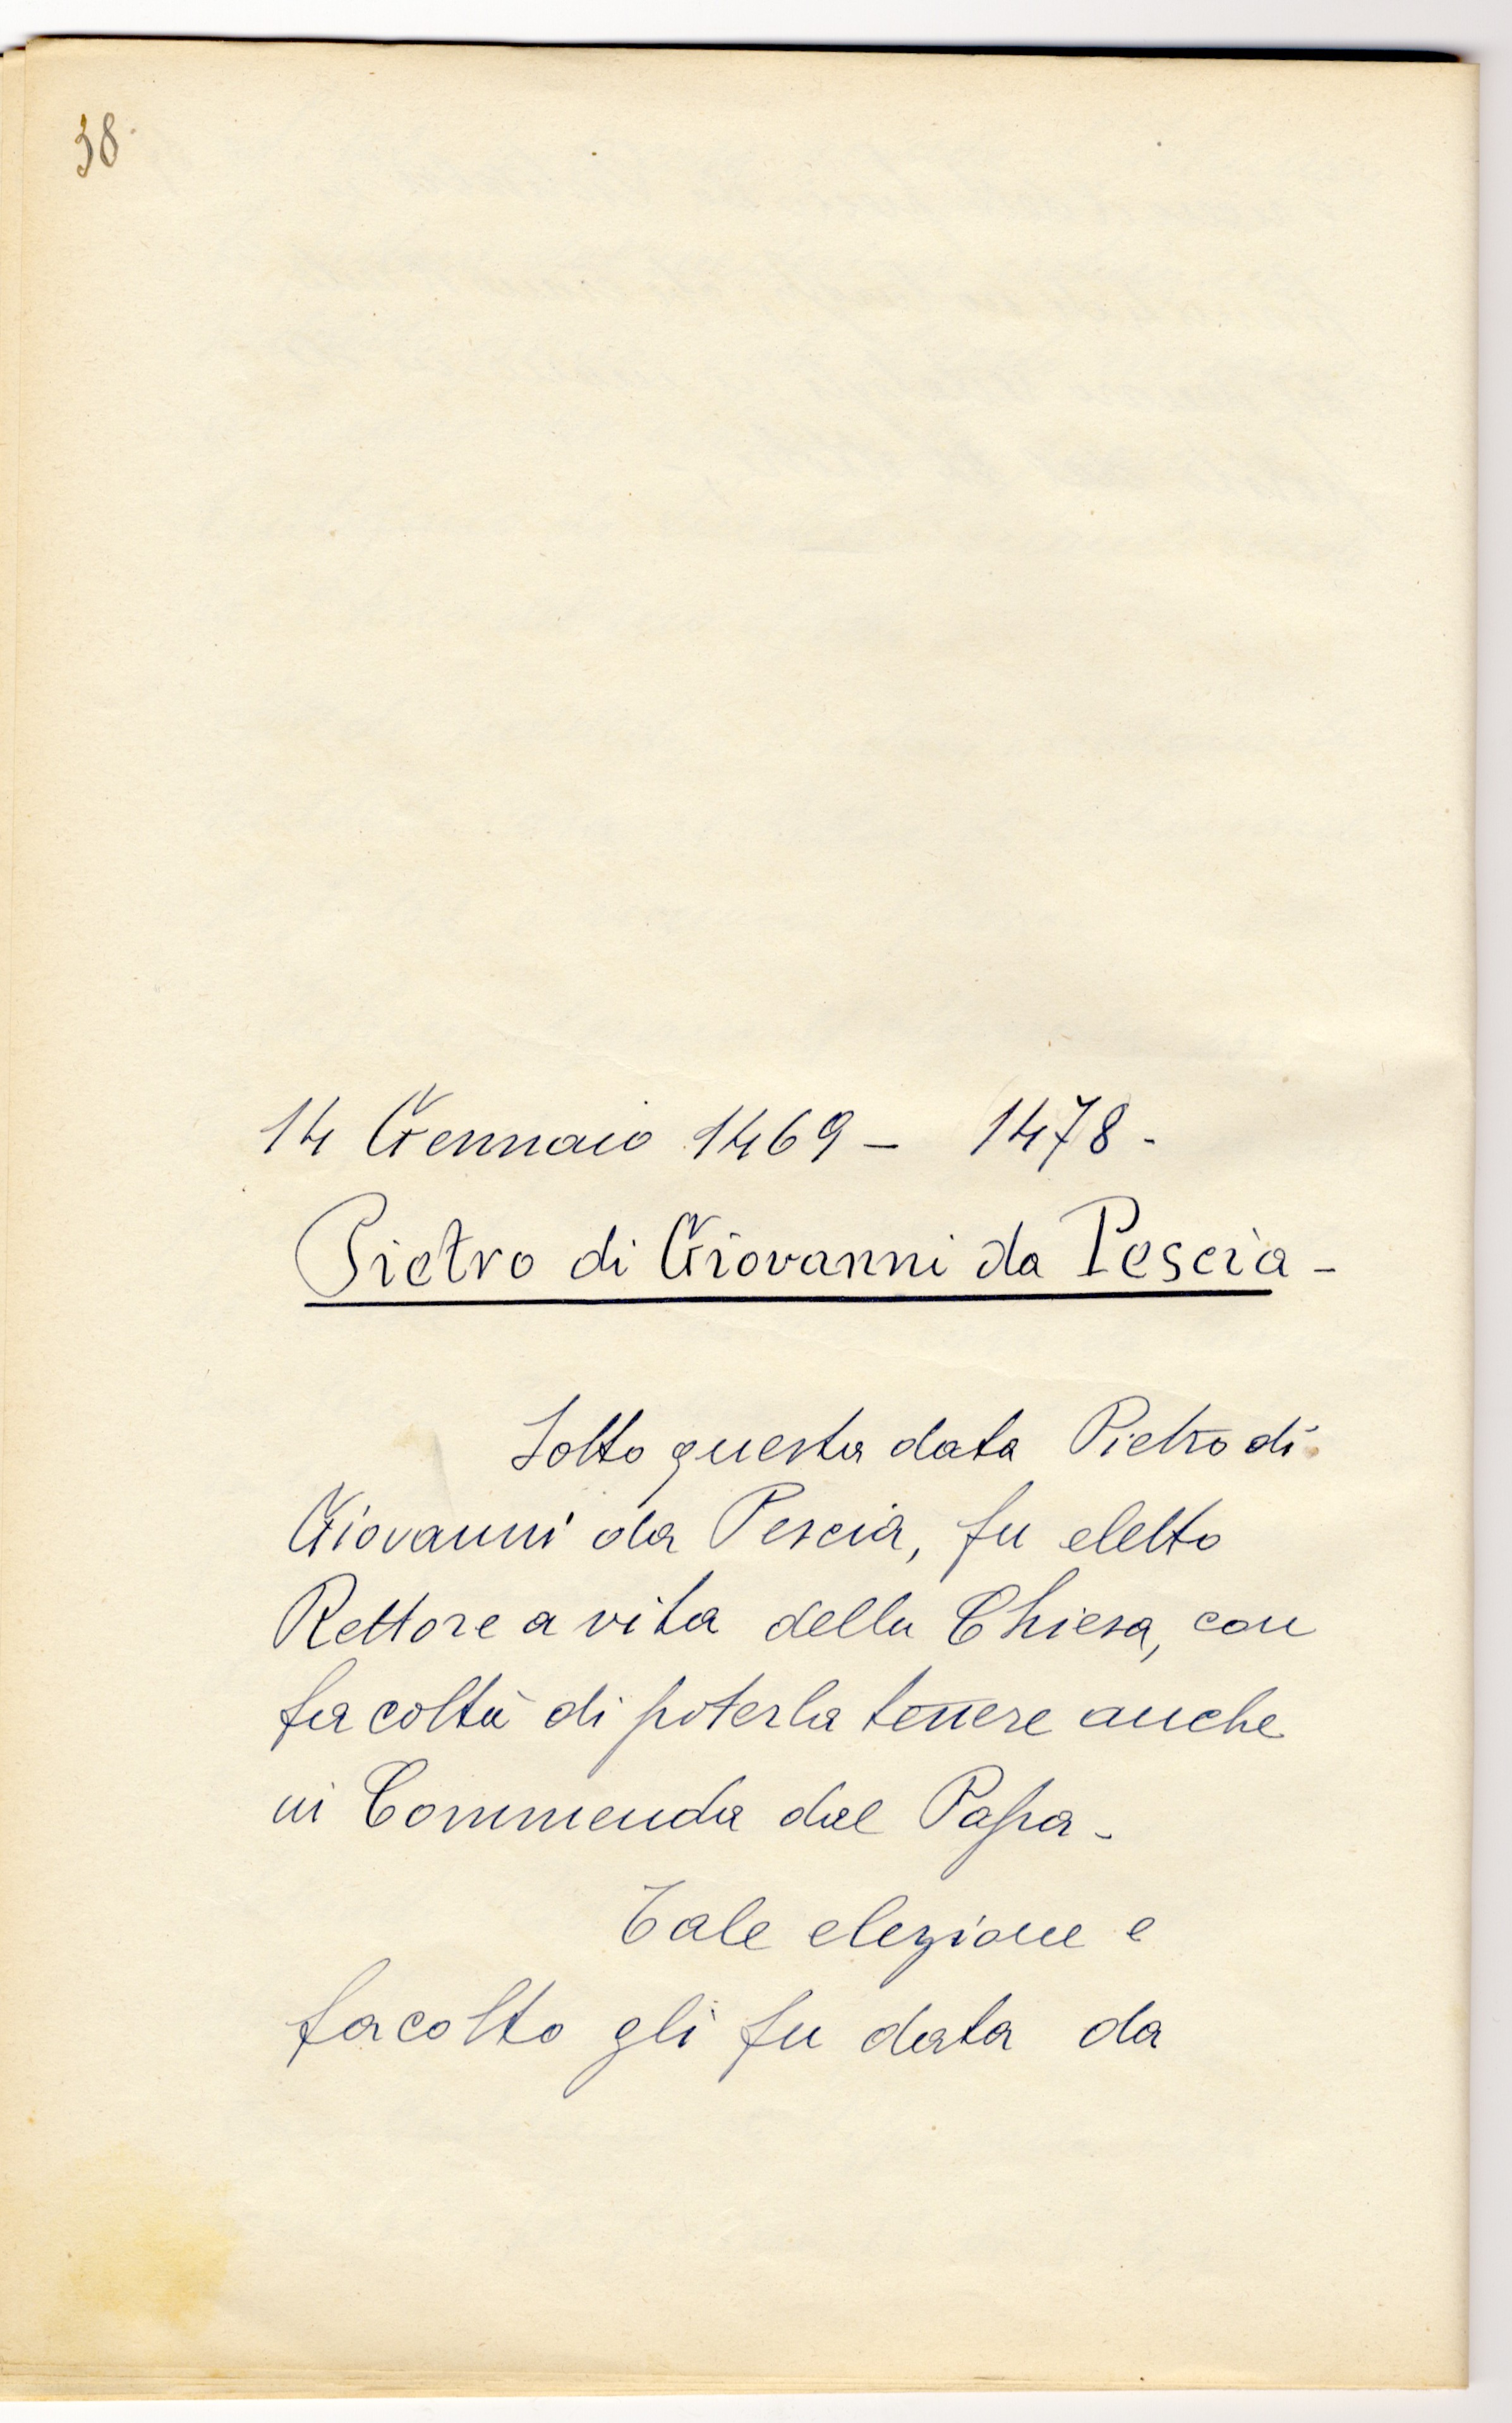 38.
14 Gennaio 1469 - 1478 -
Pietro di Giovanni da Pescia -
Sotto questa data Pietro di
Giovanni da Pescia, fu eletto
Rettore a vita della Chiesa, con
facoltà di poterla tenere anche
in Commenda dal Papa -
Tale elezione e
facolta gli fu data da